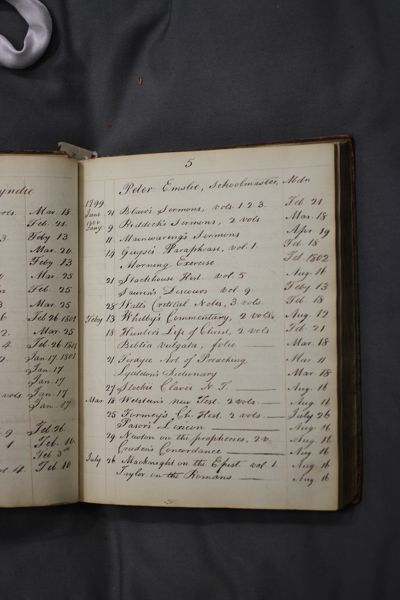 yndre
vols. Mar. 18
Feb. 21
3. Feby 13
Mar. 26
Feby 13
4 Mar. 25
Feb. 25
3 Mar. 25
Feb 26 1801
2. Mar. 25
4. Feb 26 1801
2. Jan 17 1801
Jan. 17
Jan. 17
vols Jan. 17
Jan. 17
9 Feb 26
1 Feb. 10
Feb. 3
vol. 4. Feb 10
5
Peter Emslie, Schoolmaster, Abdn
1799
June 21 Blair's Sermons, vols. 1. 2. 3. Feb 21
1800
Jany. 9 Reddoch's Sermons, 2 vols. Mar. 18
11 Mainwaring's Sermons Apr 19
14 Guyse's Paraphrase, vol. 1. Feb 18
Morning Exercise Feb 1802
21 Stackhouse Hist. vol 5 Aug 16
Saurin's Discours vol 9 Feby 13
25 Wall's Critical Notes, 3 vols. Feb 18
Feby 13 Whitby's Commentary, 2 vols. Aug. 12
18 Hunter's Life of Christ, 2 vols Feb 21
Biblia vulgata, folio Mar. 18
21 Art of Preaching Mar 11
Dictionary Mar. 18
27 Stokii Clavis N. T. Aug. 16
Mar 18 Wetstein's new Test. 2 vols. Aug 16
25 Formey's Ch. Hist. 2 vols. July 26
Pasor's Lexicon Aug. 16
29 Newton on the prophecies, 2 v. Aug. 16
Cruden's Concordance Aug. 16
July 26 Macknight on the Epist. vol 1. Aug 16
Taylor on the Romans Aug. 16